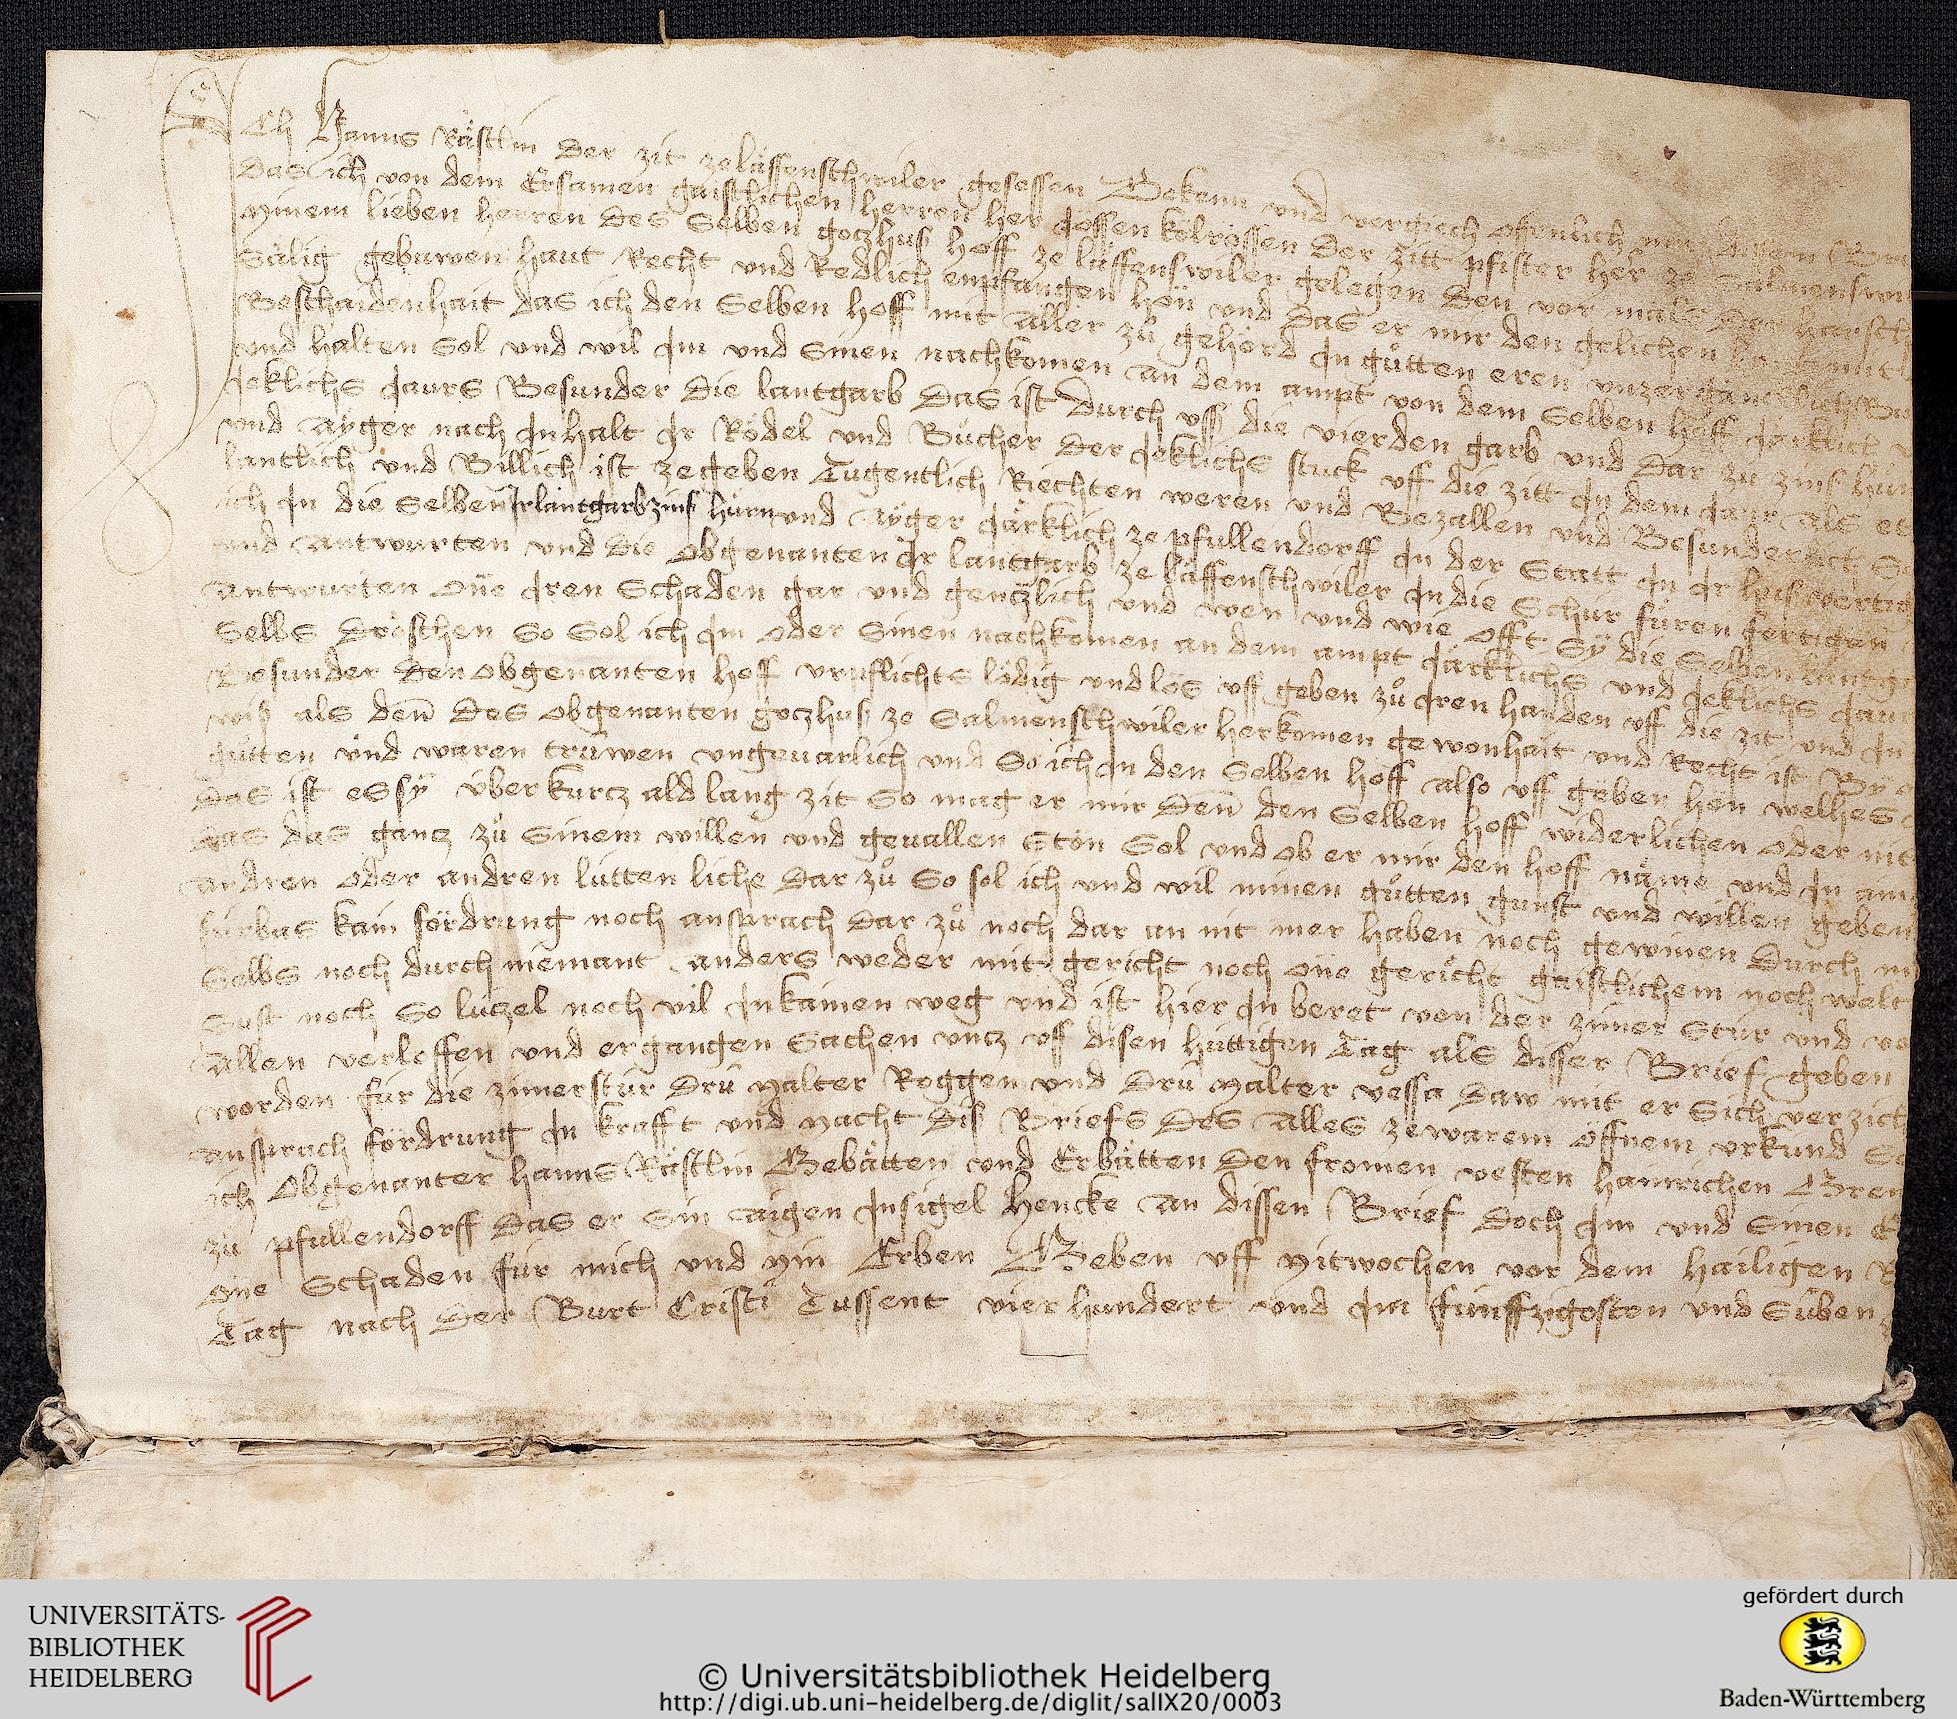 Ich Hanns Rästlin der zit ze läffenschwiler gesessen Bekenn und vergiech offenlich mit disem Bri
das ich von dem Ersamen gaistlichen herren her gossen kolrossen der zitt pfister her ze Salmenswi
minem lieben herren des Selben goczhus hoff ze läffenswiler gelegen den vor mals der harsch
Sälig gebuwen haut Recht und Redlich empfangen hön und das er mir den gelichen
Beschaidenhait das ich den Selben hoff mit aller zů gehörd In gůtten eren unzergänclich Bu
und halten Sol und wil Im und Sinen nachkomen an dem ampt von dem Selben hoff Järklich
Jeklichs Jaurs Besunder die lantgarb das ist durch uss die vierden garb und dar zů zins hün
und ayger nach Inhalt Ir Rödel und Bůcher der Jeklichs stuck uff die zitt In dem Jaur als es
lantlich und Billich ist ze geben Tugentlich Riechten weren und Bezallen und Besunder
ich In die Selben Ir lantgarb zins hürn und ayger Järklich ze pfullendorff In der Statt In Ir hus vertig
und antwurten und die obgenanten Ir lantgarb ze läffenschwiler In die Schür füren fertigen
antwurten one Iren Schaden gar und genczlich und wen und wie offt Sy die Selben lantg
Selbs dröschen So Sol ich Im oder Sinen nachkomen an dem ampt Järklichs und Jeklichs Jaur
Besunder den obgenanten hof unuflichts lödig und lös uff geben zů Iren handen uff die zit und In
wis als den des obgenanten goczhus ze Salmenschwiler herkomen gewonhait und Recht ist By
gůtten und waren trüwen ungevarlich und So ich In den Selben hoff also uff geben hön welhes
das ist es sy über kurcz ald lang zit So mag er mir den den Selben hoff widerlichen oder nit
das das gancz zů Sinem willen und gevallen Stön Sol und ob er mir den hoff näme und In aim
andren oder andren lütten liche dar zů So sol ich und wil minen gůtten gunst und willen geben
fürbas kain fördrung noch ansprach dar zů noch dar an nit mer haben noch gewinen durch mi
Selbs noch durch niemant anders weder mit gericht noch one gericht gaistlichem noch welt
Sust noch So lüczel noch vil In kainen weg und ist hier In beret von der zimer Stür und vo
allen verloffen und ergangen Sachen uncz uf disen hüttigen Tag als disser Brief geben
worden für die zimerstür drü malter Roggen und drü malter vessa daw mit er Sich verzich
ansprach fördrung In krafft und macht dis Briefs des alles ze warem offnem urkund So
ich obgenanter hanns Rästlin Gebätten und Erbätten den fromen vesten hainrichen Grem
zü pfullendorff das er Sin aigen Insigel hencke an dissen Brief doch Im und Sinen E
one Schaden für mich und min Erben Geben uff mitwochen vor dem hailigen
Tag nach der Burt Cristi Tussent vierhundert und Im fünffzigosten und Süben
UNIVERSITÄTS-
BIBLIOTHEK
HEIDELBERG
© Universitätsbibliothek Heidelberg
http://digi.ub.uni-heidelberg.de/diglit/salIX20/0003
gefördert durch
Baden-Württemberg